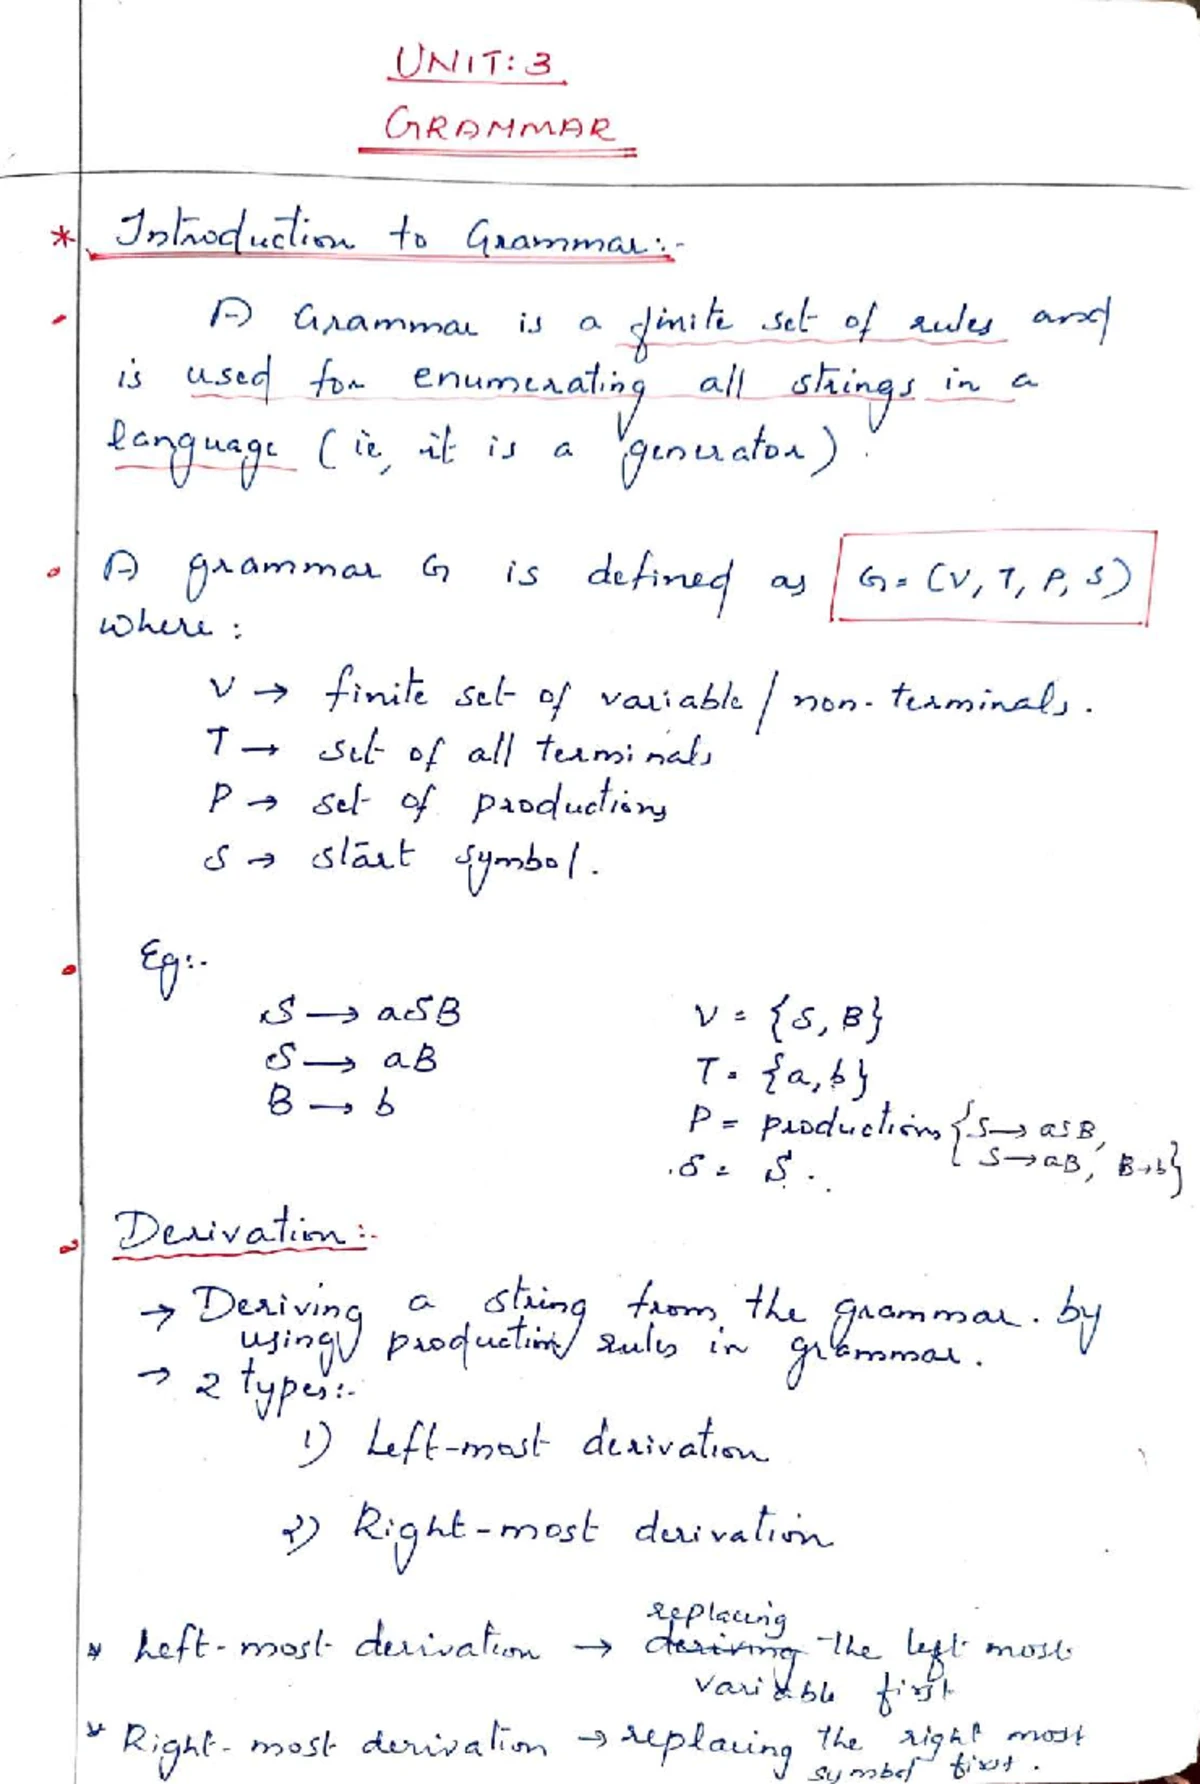 UNIT: 3
GRAMMAR
* Introduction to Grammar:-
A Grammar is a finite set of rules and
is used for enumerating all strings in a
language (ie, it is a generator).
• A grammar G is defined as G = (V, T, P, S)
where:
V → finite set of variable / non-terminals.
T → set of all terminals
P → set of productions
S → start symbol.
• Eg:-
S → aSB
S → aB
B → b
V = {S, B}
T = {a, b}
P = productions {S → aSB,
S → aB, B → b}
S = S.
Derivation:-
→ Deriving a string from the grammar. by
using production rules in grammar.
→ 2 types:-
1) Left-most derivation
2) Right-most derivation
replacing
* Left-most derivation → deriving the left most
variable first
* Right-most derivation → replacing the right most
symbol first.